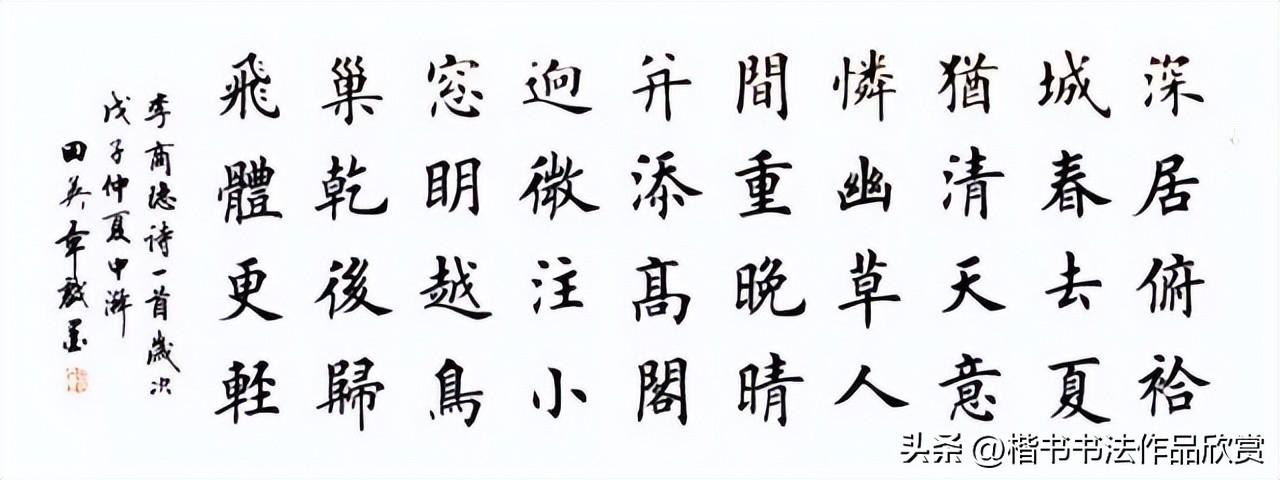 深居俯袷
城春去夏
猶清天意
憐幽草人
間重晚晴
并添髙閣
逈微注小
窓眀越鳥
巢乾後歸
飛體更輕
李商隱诗一首歲次
戊子仲夏中澣
田英章敬墨
头条 @楷书书法作品欣赏